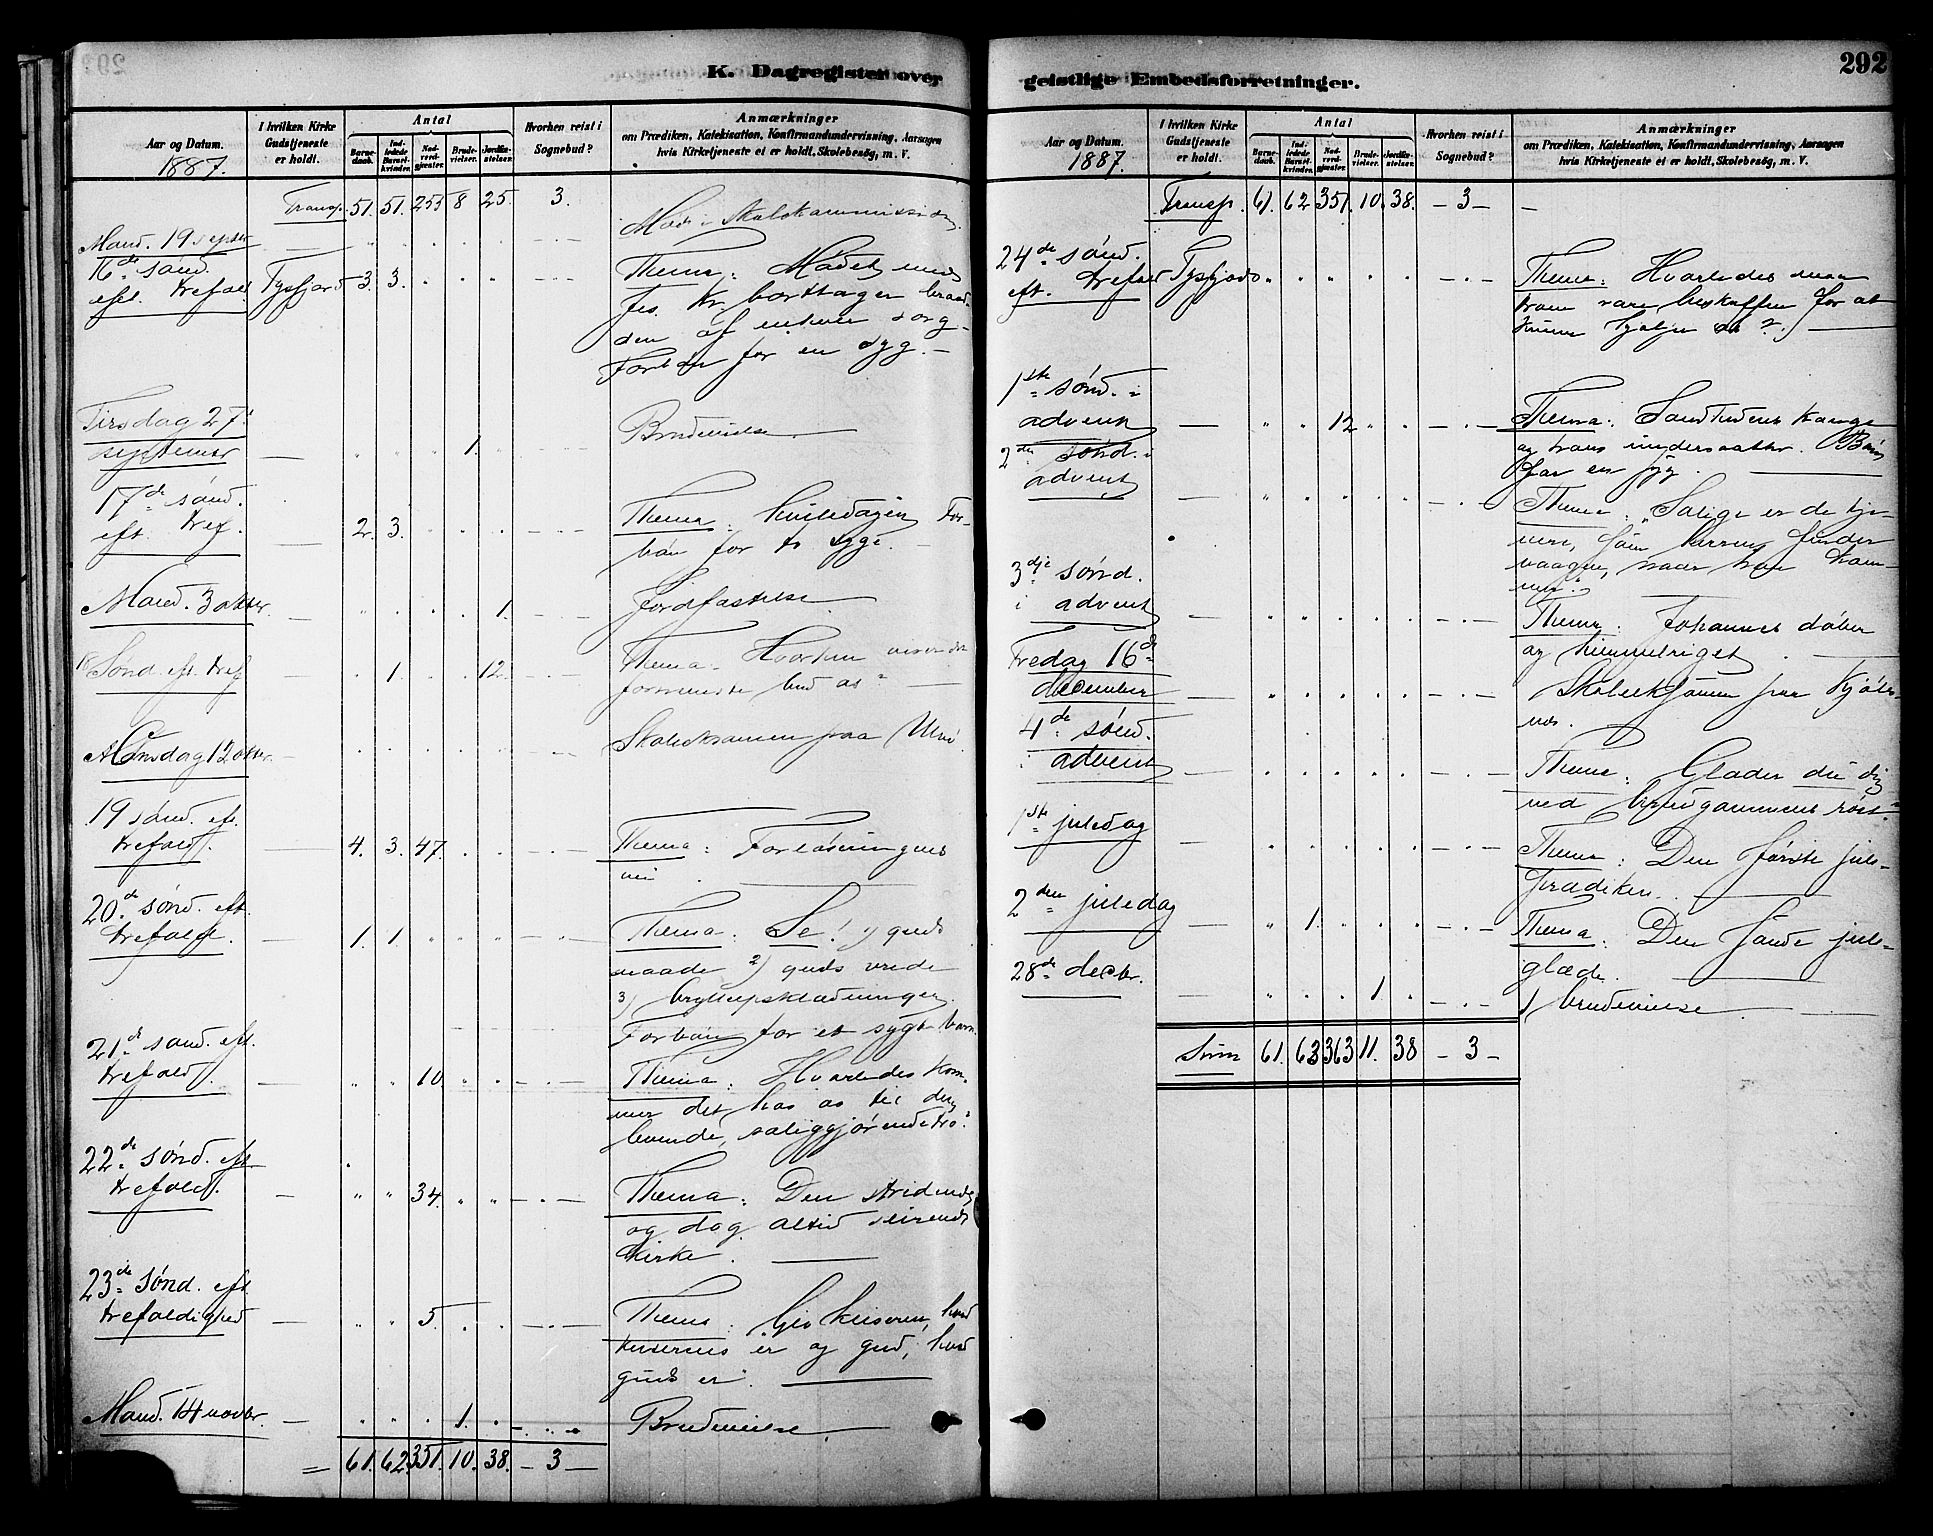 K. Dagregister over
Aar og Datum.
1887.
I hvilken Kirke Gudstjeneste er holdt.
Antal
Barnedaab.
Indledede Barselkvinder.
Nadverdgjester.
Brudevielser.
Jordfæstelser.
Hvorhen reist i Sognebud?
Anmærkninger
om Prædiken, Katekisation, Konfirmandundervisning, Aarsagen
hvis Kirketjeneste ei er holdt, Skolebesøg, m. V.
Transp. 51. 51. 255 8 25. 3.
Mand. 19 septbr
Mød. i Skolekommissionen
16de sønd. eft. trefold Tysfjord 3. 3.
Thema: Mødet med
Jes. Kr. borttager braad-
den af enhver sorg –
Forbøn for en syg. –
Tirsdag 27de september 1.
Brudevielse
17de sønd. eft. tref. 2. 3.
Thema: hviledagen For-
bøn for to syge. –
Mand. 3 oktbr. 1.
Jordfæstelse
18 Sønd eft tref 1. 12.
Thema: Hvorhen viser det
forunderlige bud os
Onsdag 12 oktbr.
Skoleeksamen paa
19 sønd. eft. trefold. 4. 3. 47.
Thema: Forløsningens
vei.
20de sønd. eft. trefold. 1. 1.
Thema: Se! 1) guds
naade 2) guds vrede
3) bryllupsklædningen.
Forbøn for et sygt barn.
21de sønd. eft. trefold. 10
Thema: Hvorledes kom-
mer det hos os til den
levende, saliggjørende tro?
22de sønd. eft trefold. 34.
Thema: Den stridende
og dog altid seirende
kirke.
23de sønd. eft trefoldighed 5.
Thema: Giv keiseren, hvad
keiserens er og gud, hvad
guds er".
Mand. 14 novbr. 1.
Brudevielse
= 61. 62. 351. 10. 38. – 3 –
geistlige Embedsforretninger.
292
Aar og Datum.
1887.
I hvilken Kirke Gudstjeneste er holdt.
Antal
Barnedaab.
Indledede Barselkvinder.
Nadverdgjester.
Brudevielser.
Jordfæstelser.
Hvorhen reist i Sognebud?
Anmærkninger
om Prædiken, Katekisation, Konfirmandundervisning, Aarsagen
hvis Kirketjeneste ei er holdt, Skolebesøg, m. V.
Transp. 61. 62 351. 10. 38. – 3 –
24de sønd. eft. trefold Tysfjord
Thema: Hvorledes maa
troen være beskaffen for at
kunne hjælpe os?
1ste sønd. i advent 12
Thema: Sandhedens konge
og hans undersaatter. Bøn
for en syg.
2den sønd. i advent
Thema: „Salige er de tje-
nere, som herren finder
vaagne, naar han kom-
mer".
3dje sønd. i advent
Thema: Johannes døber
og himmelriget.
Fredag 16de december
Skoleeksamen paa Kjøls-
nes.
4de sønd. i advent
Thema: Glæder du dig
ved brudgommens røst?
1ste juledag
Thema: Den første jule-
prædiken.
2den juledag 1.
Thema: Den sande jule-
glæde.
28de decbr. 1.
1 brudevielse
Sum 61. 63 363 11. 38 – 3 –